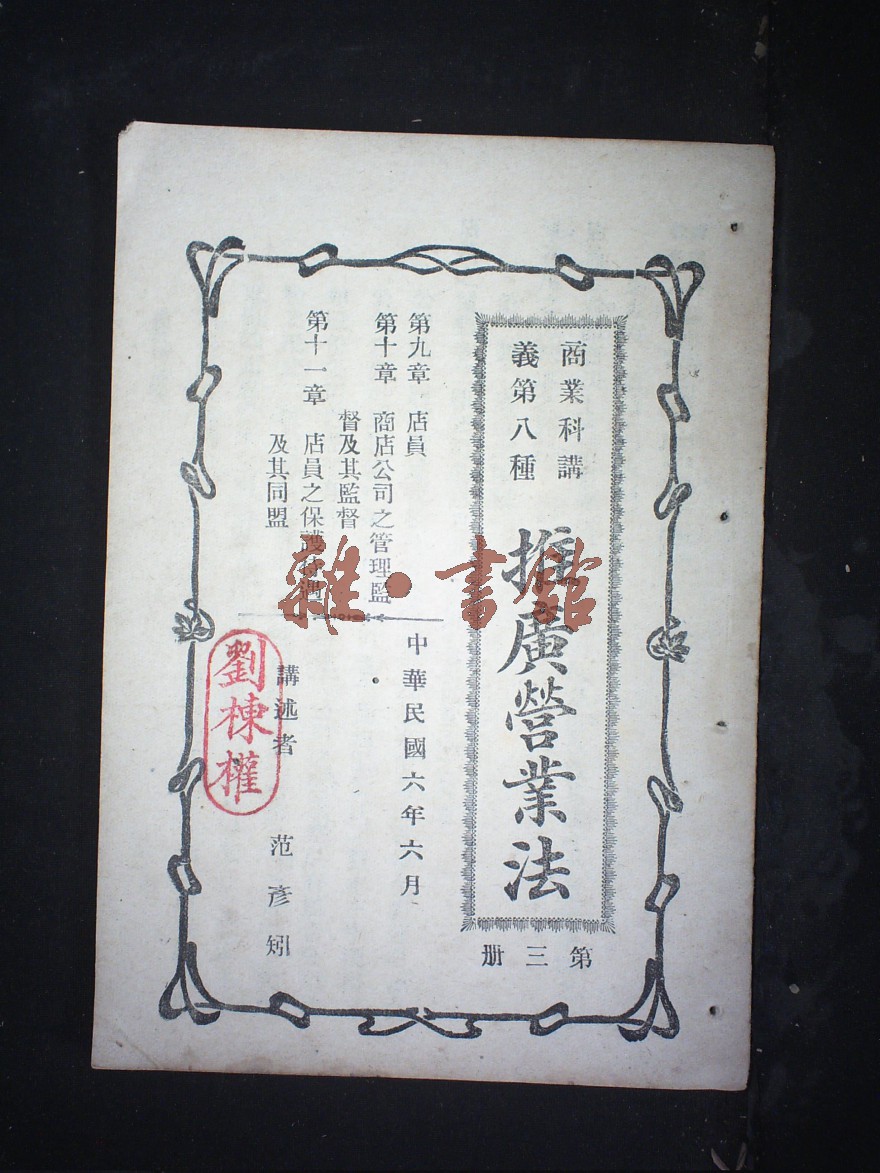 商業科講
義第八種
推廣營業法
第三册
第九章 店員
第十章 商店公司之管理監
督及其監督
第十一章 店員之保護待遇
及其同盟
中華民國六年六月
講述者 范彥矧
劉棟權
雜·書館